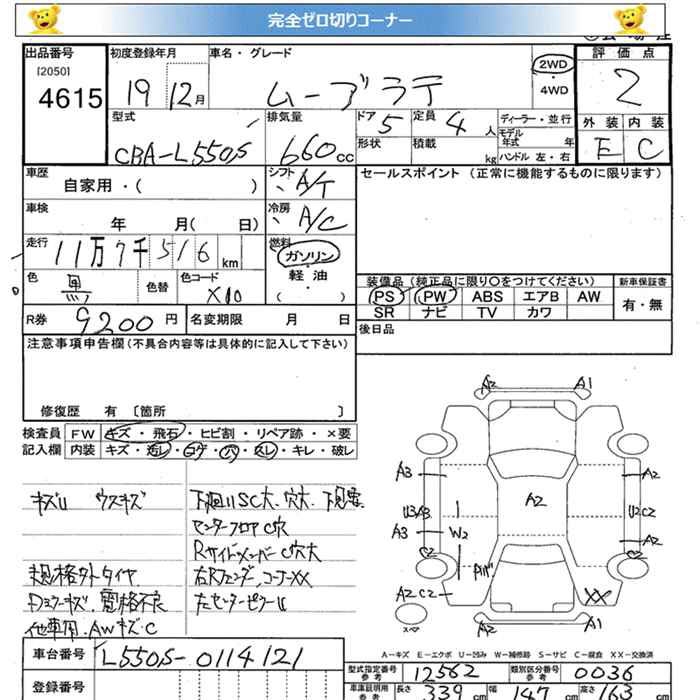 完全ゼロ切りコーナー
出品番号 初度登録年月 車名・グレード 2WD ・ 4WD 評価点
[2050]
4615 19 12月 ムーブラテ 2
型式 排気量 ドア 5 定員 4人 ディーラー・並行 外装 内装
CBA-L550S 660cc 形状 積載 kg モデル年式 年 E C
ハンドル 左・右
車歴 シフト A/T セールスポイント (正常に機能するものに限ります)
自家用・( )
車検 冷房 A/C
年 月( 日)
走行 11万7千516km 燃料 ガソリン
軽油
( ・ )
色 黒 色替 色コード X10
装備品 (純正品に限り○をつけてください) 新車保証書
PS PW ABS エアB AW 有・無
SR ナビ TV カワ
R券 9200円 名変期限 月 日 後日品
注意事項申告欄(不具合内容等は具体的に記入して下さい)
修復歴 有 〔箇所 〕
検査員 FW キズ・飛石・ヒビ割・リペア跡・×要
記入欄 内装 キズ・汚レ・コゲ・穴・スレ・キレ・破レ
キズU ウスキズ
下廻りSC大、穴大、下見要
センターフロアC穴
RサイドメンバーC穴大
規格外タイヤ 右Rフェンダ、コーナーXX
Dミラーキズ、電格不良 左センターピラーU
他車用、AWキズ・C
A2 A1
A3 A2
A2
U3A3 U2C2
A3 W2 A2
C2 C2
A2C2 XX
スペア A2 A1
A-キズ E-エクボ U-凹み W-補修跡 S-サビ C-腐食 XX-交換済
車台番号 L550S-0114121
型式指定番号 参考 12562 類別区分番号 参考 0036
登録番号
車庫証明用 参考 長さ 339cm 幅 147cm 高さ 163cm